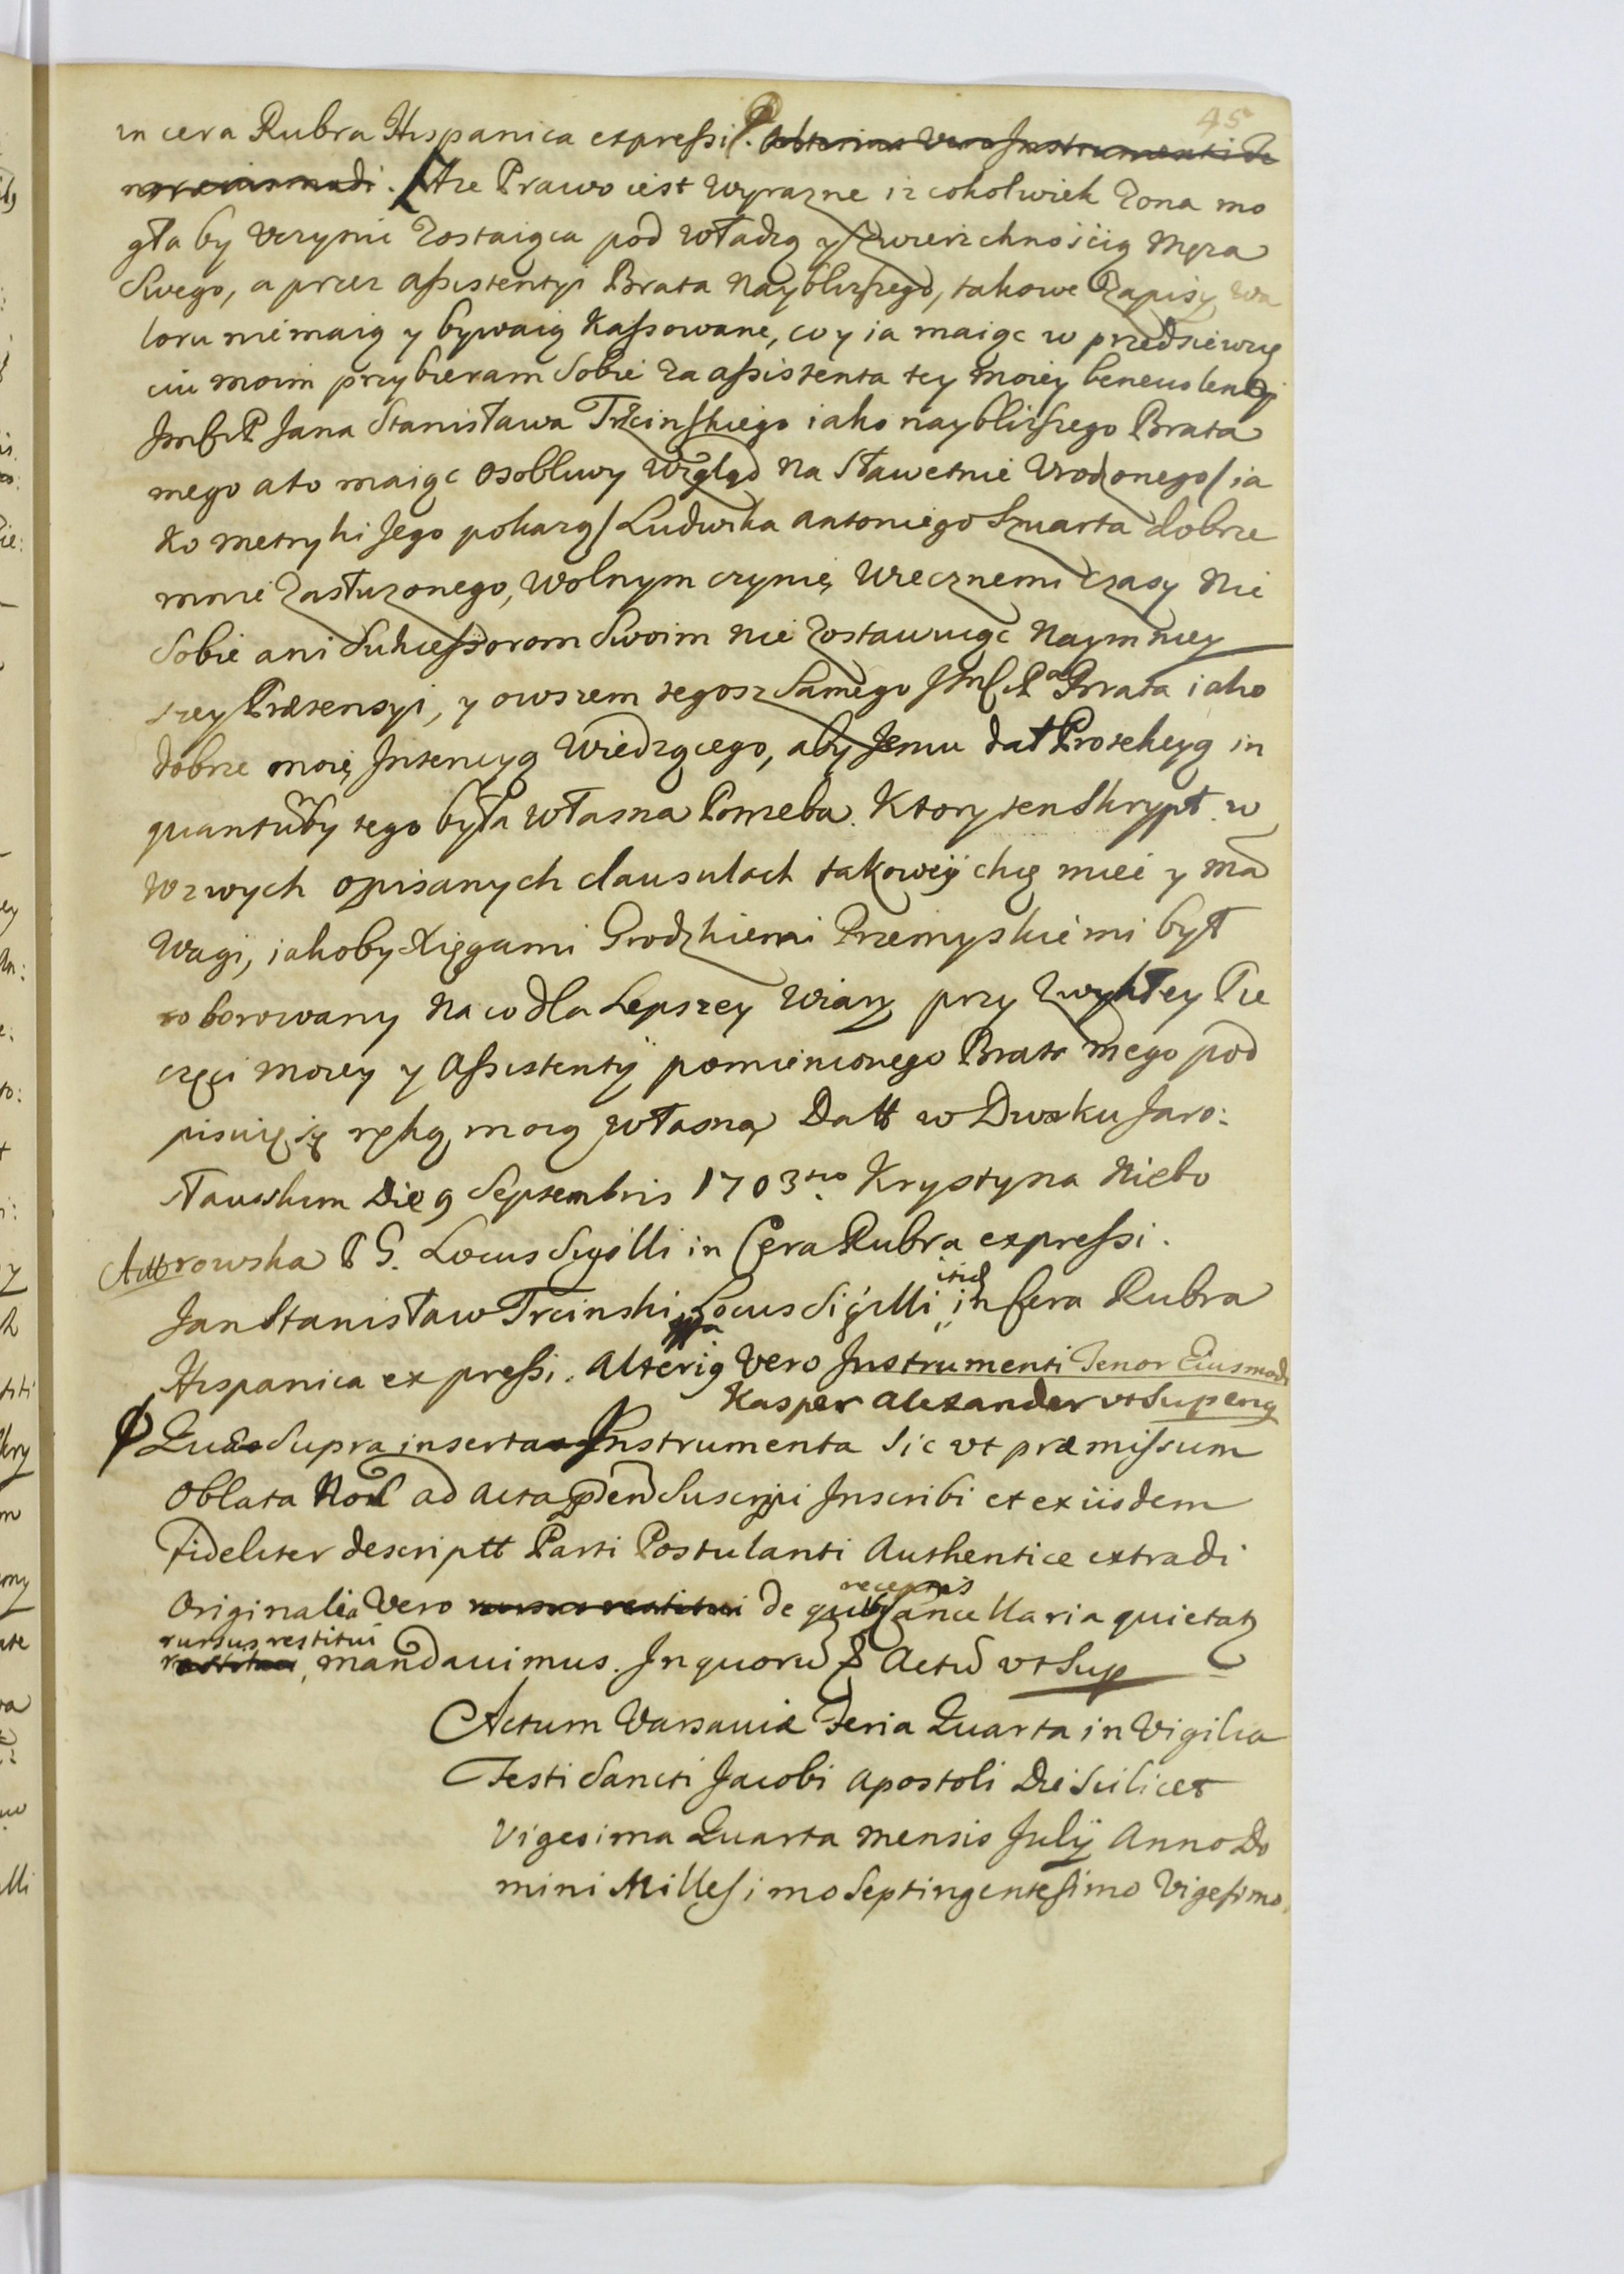 45
in cera Rubra Hispanica expressi. Alterius Vero Instrumenti Te
nor eiusmodi. Aże Prawo iest wyrazne iz cokolwiek Zona mo
gła by Vczynic Zostaiąca pod władzą y Zwierzchnośćią Męza
Swego, a przez assistentyi Brata Nayblizszego, takowe Zapisy wa
loru niemaią y bywaią Kassowane, co y ia maiąc w przedsiewzię
ciu moim przybieram Sobie Za assistenta tey Moiey beneuolencyi
Jana Stanisława Trzcinskiego iako nayblizszego Brata
mego a to maiąc osobliwy Wzgląd Na Sławetnie Vrodzonego/ia
ko metryki Jego pokazą/Ludwika Antoniego Szwarta dobrze
mnie Zasłuzonego, Wolnym czynię Wiecznemi czasy Nie
Sobie ani Sukcessorom Swoim nie Zostawuiąc Naymniey
szey Prætensyi, y owszem tegosz Samego Brata iako
dobrze moię Intencyą Wiedzącego, aby Jemu dał Protekcyą in
quantuby tego była własna Potrzeba. Ktory ten Skrypt w
Wzwych opisanych clausulach takoweÿ chcę miec y ma
Wagi, iakoby Xięgami Grodzkiemi Przemyskiemi był
roborowany Na co dla Lepszey Wiary przy Zwykłey Pie
częci moiey y Assistentÿ pomienionego Brata mego pod
pisuię się ręką moią własną Datt w Dworku Jaro:
sławskim Die 9 Septembris 1703tio Krystyna Niebo
rowska P G. Locus Sigilli in Cera Rubra expressi.
Jan Stanisław Trcinski Locus Sigilli itid in Cera Rubra
Hispanica expressi. Alteriq Vero Instrumenti Tenor Eiusmodi
Kasper Alexander vt Sup
Quæ Supra inserta Instrumenta Sic vt præmissum
Oblata ad Acta Suscipi Inscribi et ex iisdem
fideliter descriptt Parti Postulanti Authentice extradi
receptis
Originalia Vero rursus restitui de quibq Cancellaria quietatq
rursus restitui
restitui, mandauimus. In quoru Actu vt Sup
Actum Varsauiæ Feria Quarta in Vigilia
Festi Sancti Jacobi Apostoli Die Scilicet
Vigesima Quarta mensis Julÿ Anno Do
mini Millesimo Septingentesimo Vigesimo